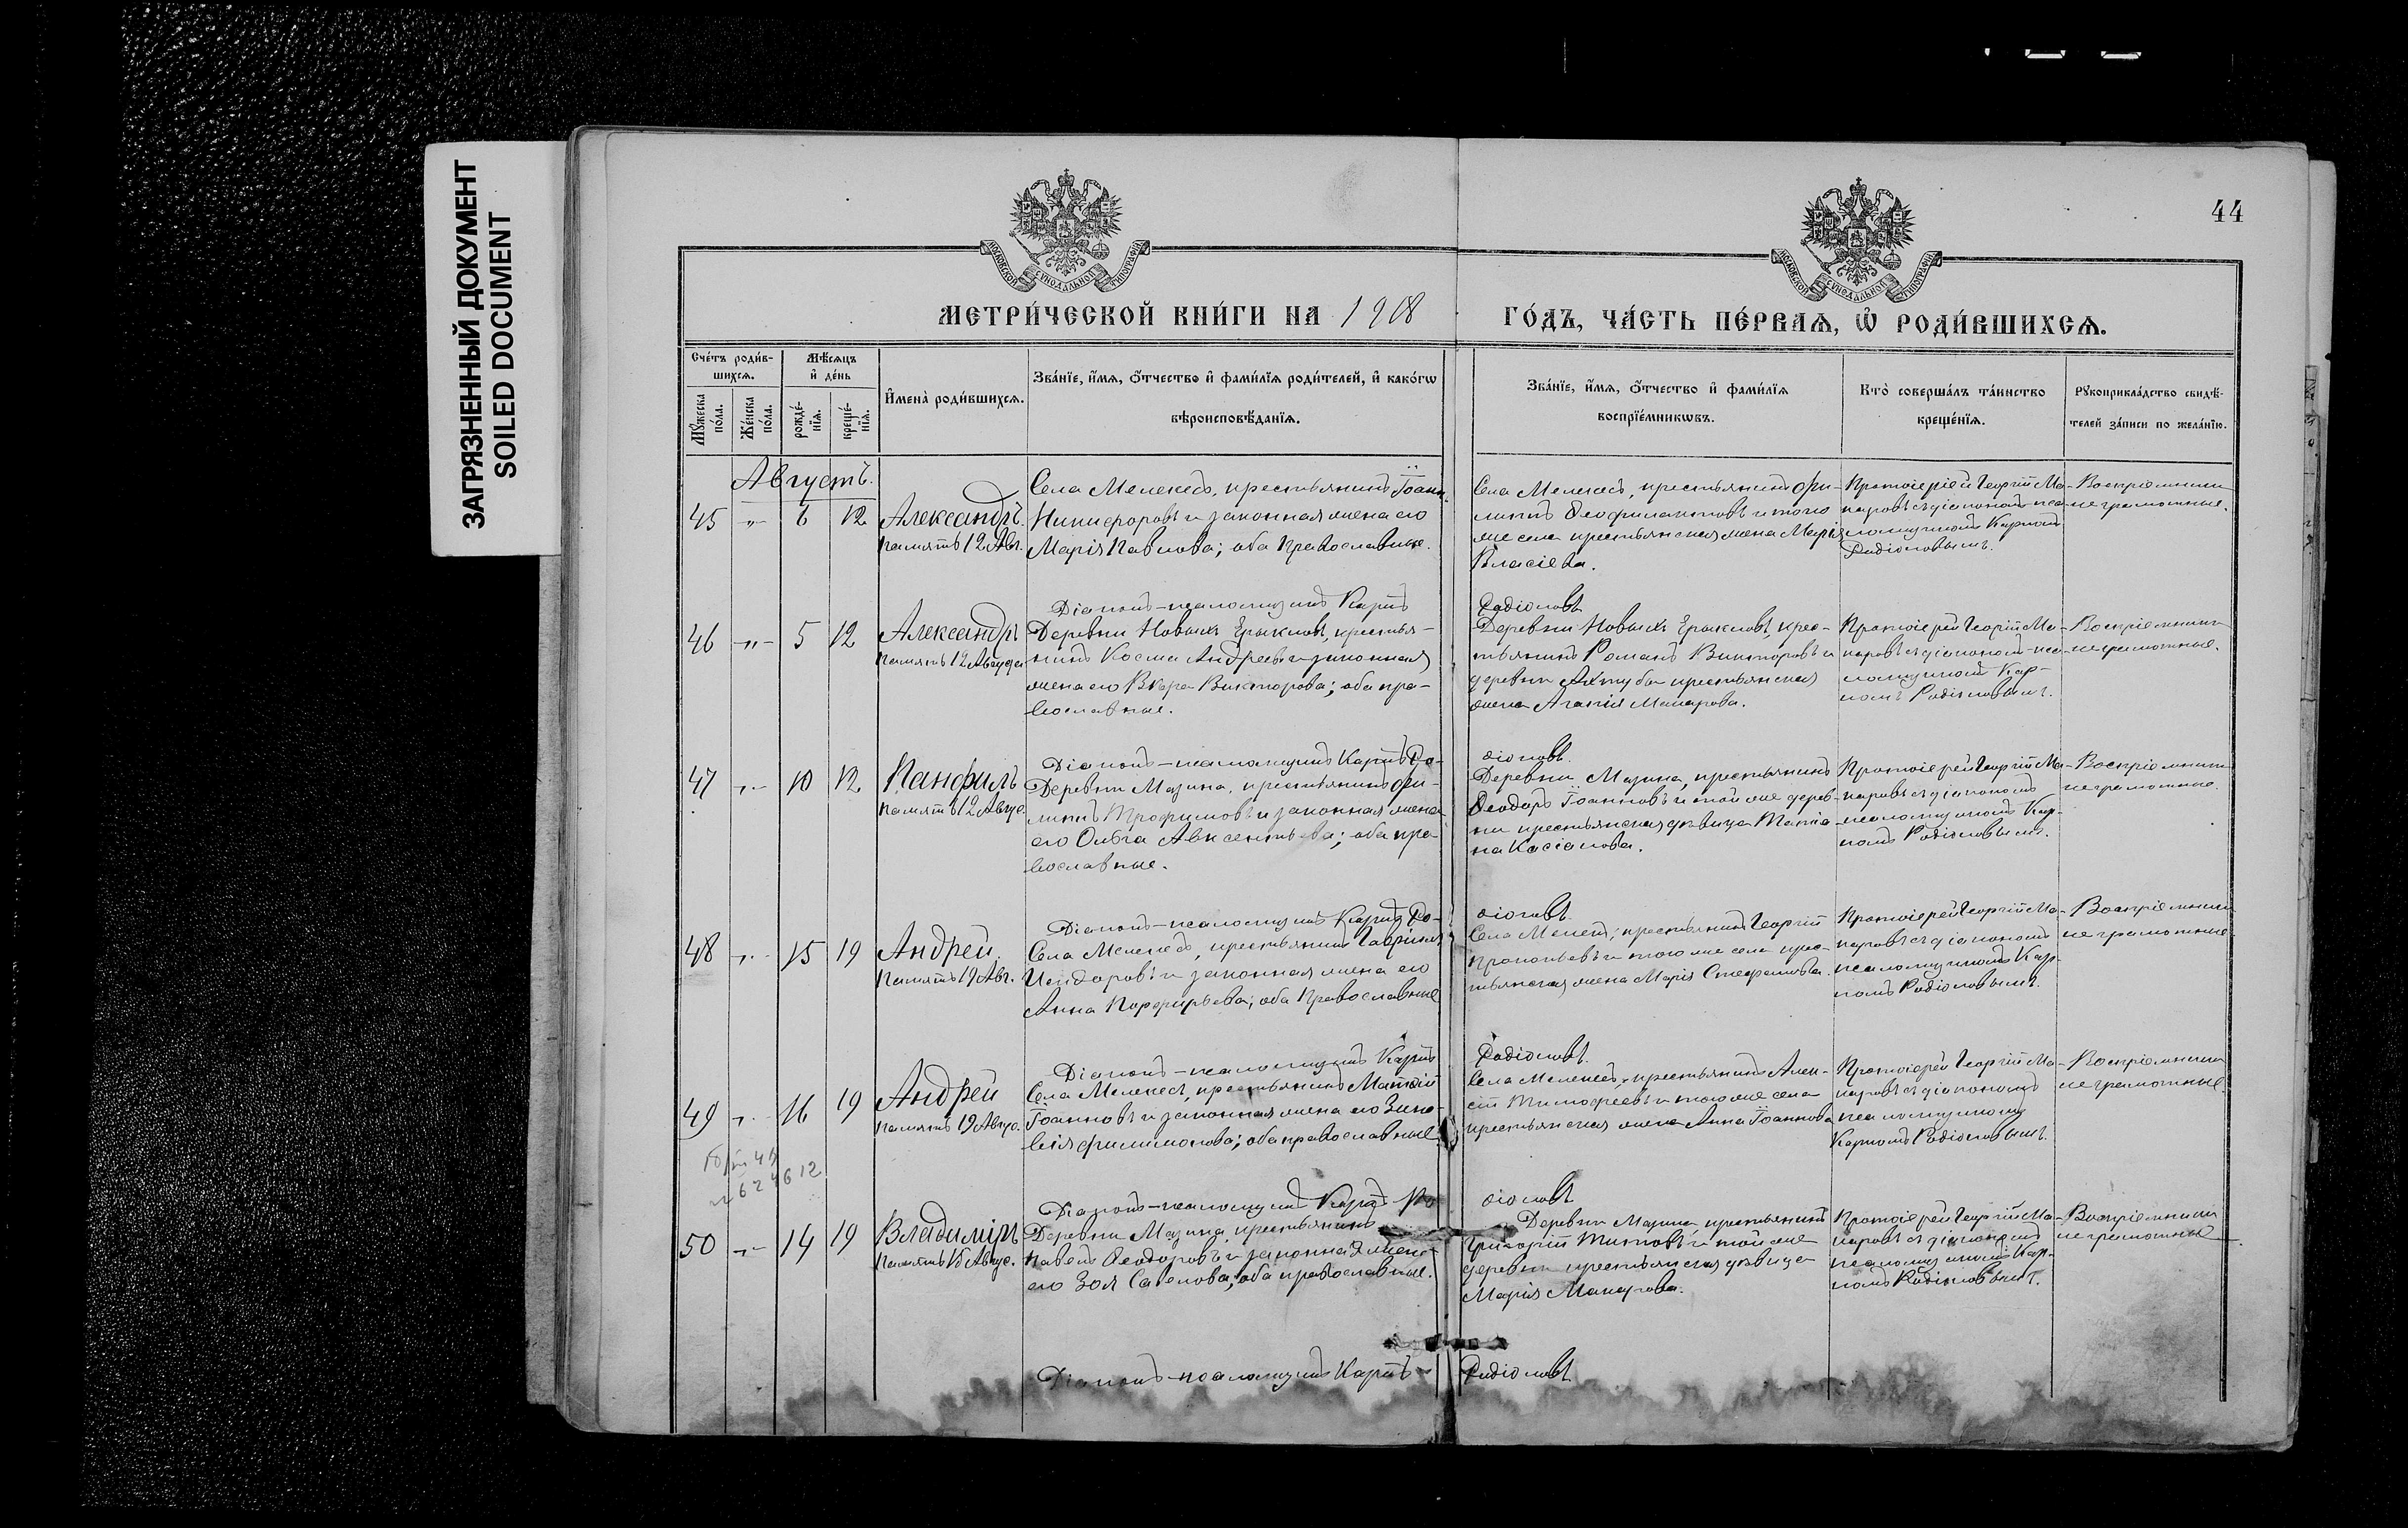 ЗАГРЯЗНЕННЫЙ ДОКУМЕНТ
SOILED DOCUMENT
44
МОСКОВСКОЙ СѴНОДАЛЬНОЙ ТИПОГРАФІИ
МОСКОВСКОЙ СѴНОДАЛЬНОЙ ТИПОГРАФІИ
МЕТРИ́ЧЕСКОЙ КНИ́ГИ НА 1908
ГО́ДЪ, ЧА́СТЬ ПЕ́РВАѦ, Ѡ҆ РОДИ́ВШИХСѦ.
Сче́тъ роди́в-
шихсѧ.
Мѣ́сяцъ
и҆ де́нь
Мꙋ́жеска по́ла.
Же́нска по́ла.
рожде́-
нїѧ.
креще́-
нїѧ.
И҆мена̀ роди́вшихсѧ.
Зва́нїе, и҆́мѧ, ѻ҆́тчество и҆ фами́лїѧ роди́телей, и҆ како́гѡ
вѣроисповѣ́данїѧ.
Зва́нїе, и҆́мѧ, ѻ҆́тчество и҆ фами́лїѧ
воспрїе́мникѡвъ.
Кто̀ соверша́лъ та́инство
креще́нїѧ.
Рꙋкоприкла́дство свидѣ́-
телей за́писи по жела́нїю.
Августъ.
45 -„- 6 12
Александръ.
память 12 Авг.
Села Мелекесъ, крестьянинъ Іоанн
Никифоровъ и законная жена его
Марія Павлова; оба православные.
Села Мелекесъ, крестьянинъ Фи-
липпъ Ѳеофилактовъ и того
же села крестьянская жена Марія
Власіева.
Протоіерей Георгій Ма-
каровъ съ діакономъ пса-
ломщикомъ Карпомъ
Радіоновымъ.
Воспріемники
неграмотные.
Діаконъ-псаломщикъ Карпъ
Радіоновъ
46 -„- 5 12
Александръ
память 12 Августа
Деревни Новыхъ Ерыкловъ, крестья-
нинъ Косма Андреевъ и законная
жена его Вѣра Викторова; оба пра-
вославные.
Деревни Новыхъ Ерыкловъ, крес-
тьянинъ Романъ Викторовъ и
деревни Ахтубы крестьянская
жена Агапія Макарова.
Протоіерей Георгій Ма-
каровъ съ діакономъ-пса-
ломщикомъ Кар-
помъ Радіоновымъ.
Воспріемники
неграмотные.
Діаконъ-псаломщикъ Карпъ Ра-
діоновъ.
47 -„- 10 12
Панфилъ
память 12 Авгус.
Деревни Мазина, крестьянинъ Фи-
липпъ Трофимовъ и законная жена
его Ольга Авксентьева; оба пра-
вославные.
Деревни Мазина, крестьянинъ
Ѳеодоръ Іоанновъ и той же дерев-
ни крестьянская дѣвица Татіа-
на Касіанова.
Протоіерей Георгій Ма-
каровъ съ діакономъ
псаломщикомъ Кар-
помъ Радіоновымъ.
Воспріемники
неграмотные.
Діаконъ-псаломщикъ Карпъ Ра-
діоновъ.
48 -„- 15 19
Андрей.
память 19 Авг.
Села Мелекесъ, крестьянинъ Гавріилъ
Исидоровъ и законная жена его
Анна Порфирьева; оба православные
Села Мелекесъ, крестьянинъ Георгій
Прокопьевъ и того же села крес-
тьянская жена Марія Стефанова.
Протоіерей Георгій Ма-
каровъ съ діакономъ
псаломщикомъ Кар-
помъ Радіоновымъ.
Воспріемники
неграмотные.
Діаконъ-псаломщикъ Карпъ
Радіоновъ.
49 -„- 16 19
Андрей
память 19 Авгус.
Села Мелекесъ, крестьянинъ Матѳій
Іоанновъ и законная жена его Зино-
вія Филимонова; оба православные
Села Мелекесъ, крестьянинъ Алек-
сій Тимофеевъ и того же села
крестьянская жена Анна Іоаннова
Протоіерей Георгій Ма-
каровъ съ діакономъ
псаломщикомъ
Карпомъ Радіоновымъ.
Воспріемники
неграмотные.
624612
Діаконъ-псаломщикъ Карпъ Ра
діоновъ
50 -„- 14 19
Владиміръ
память 15 Авгус.
Деревни Мазина, крестьянинъ
Павелъ Ѳеодоровъ и законная жена
его Зоя Савелова; оба православные.
Деревни Мазина крестьянинъ
Григорій Титовъ и той же
деревни крестьянская дѣвица
Марія Макарова.
Протоіерей Георгій Ма-
каровъ съ діакономъ
псаломщикомъ Кар-
помъ Радіоновымъ.
Воспріемники
неграмотные
Діаконъ-псаломщикъ Карпъ
Радіоновъ